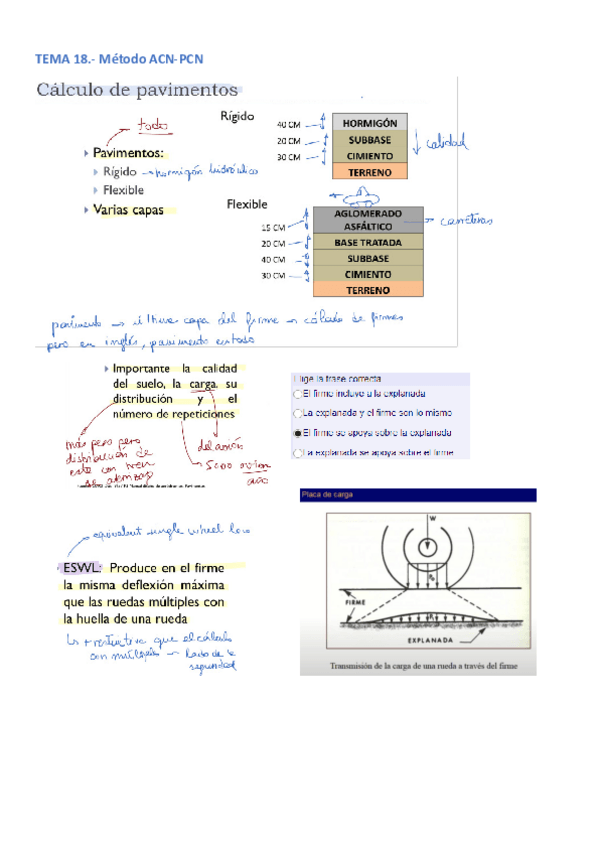 TEMA 18.- Método ACN-PCN
Cálculo de pavimentos
todo
Pavimentos:
Rígido → hormigón hidráulico
Flexible
Varias capas
Rígido
40 CM
HORMIGÓN
20 CM
SUBBASE
30 CM
CIMIENTO
TERRENO
calidad
Flexible
15 CM
AGLOMERADO
ASFÁLTICO
carreteras
20 CM
BASE TRATADA
40 CM
SUBBASE
30 CM
CIMIENTO
TERRENO
pavimento → última capa del firme → cálculo de firmes
pero en inglés, pavimento es todo
Importante la calidad
del suelo, la carga, su
distribución y el
número de repeticiones
más peso pero
distribución de
este con tren
de aterrizaje
del avión
5000 avión
año
Elige la frase correcta
El firme incluye a la explanada
La explanada y el firme son lo mismo
El firme se apoya sobre la explanada
La explanada se apoya sobre el firme
equivalent single wheel load
ESWL: Produce en el firme
la misma deflexión máxima
que las ruedas múltiples con
la huella de una rueda
↳ + restrictiva que el cálculo
con múltiples → lado de la
seguridad
Placa de carga
W
FIRME
EXPLANADA
Transmisión de la carga de una rueda a través del firme